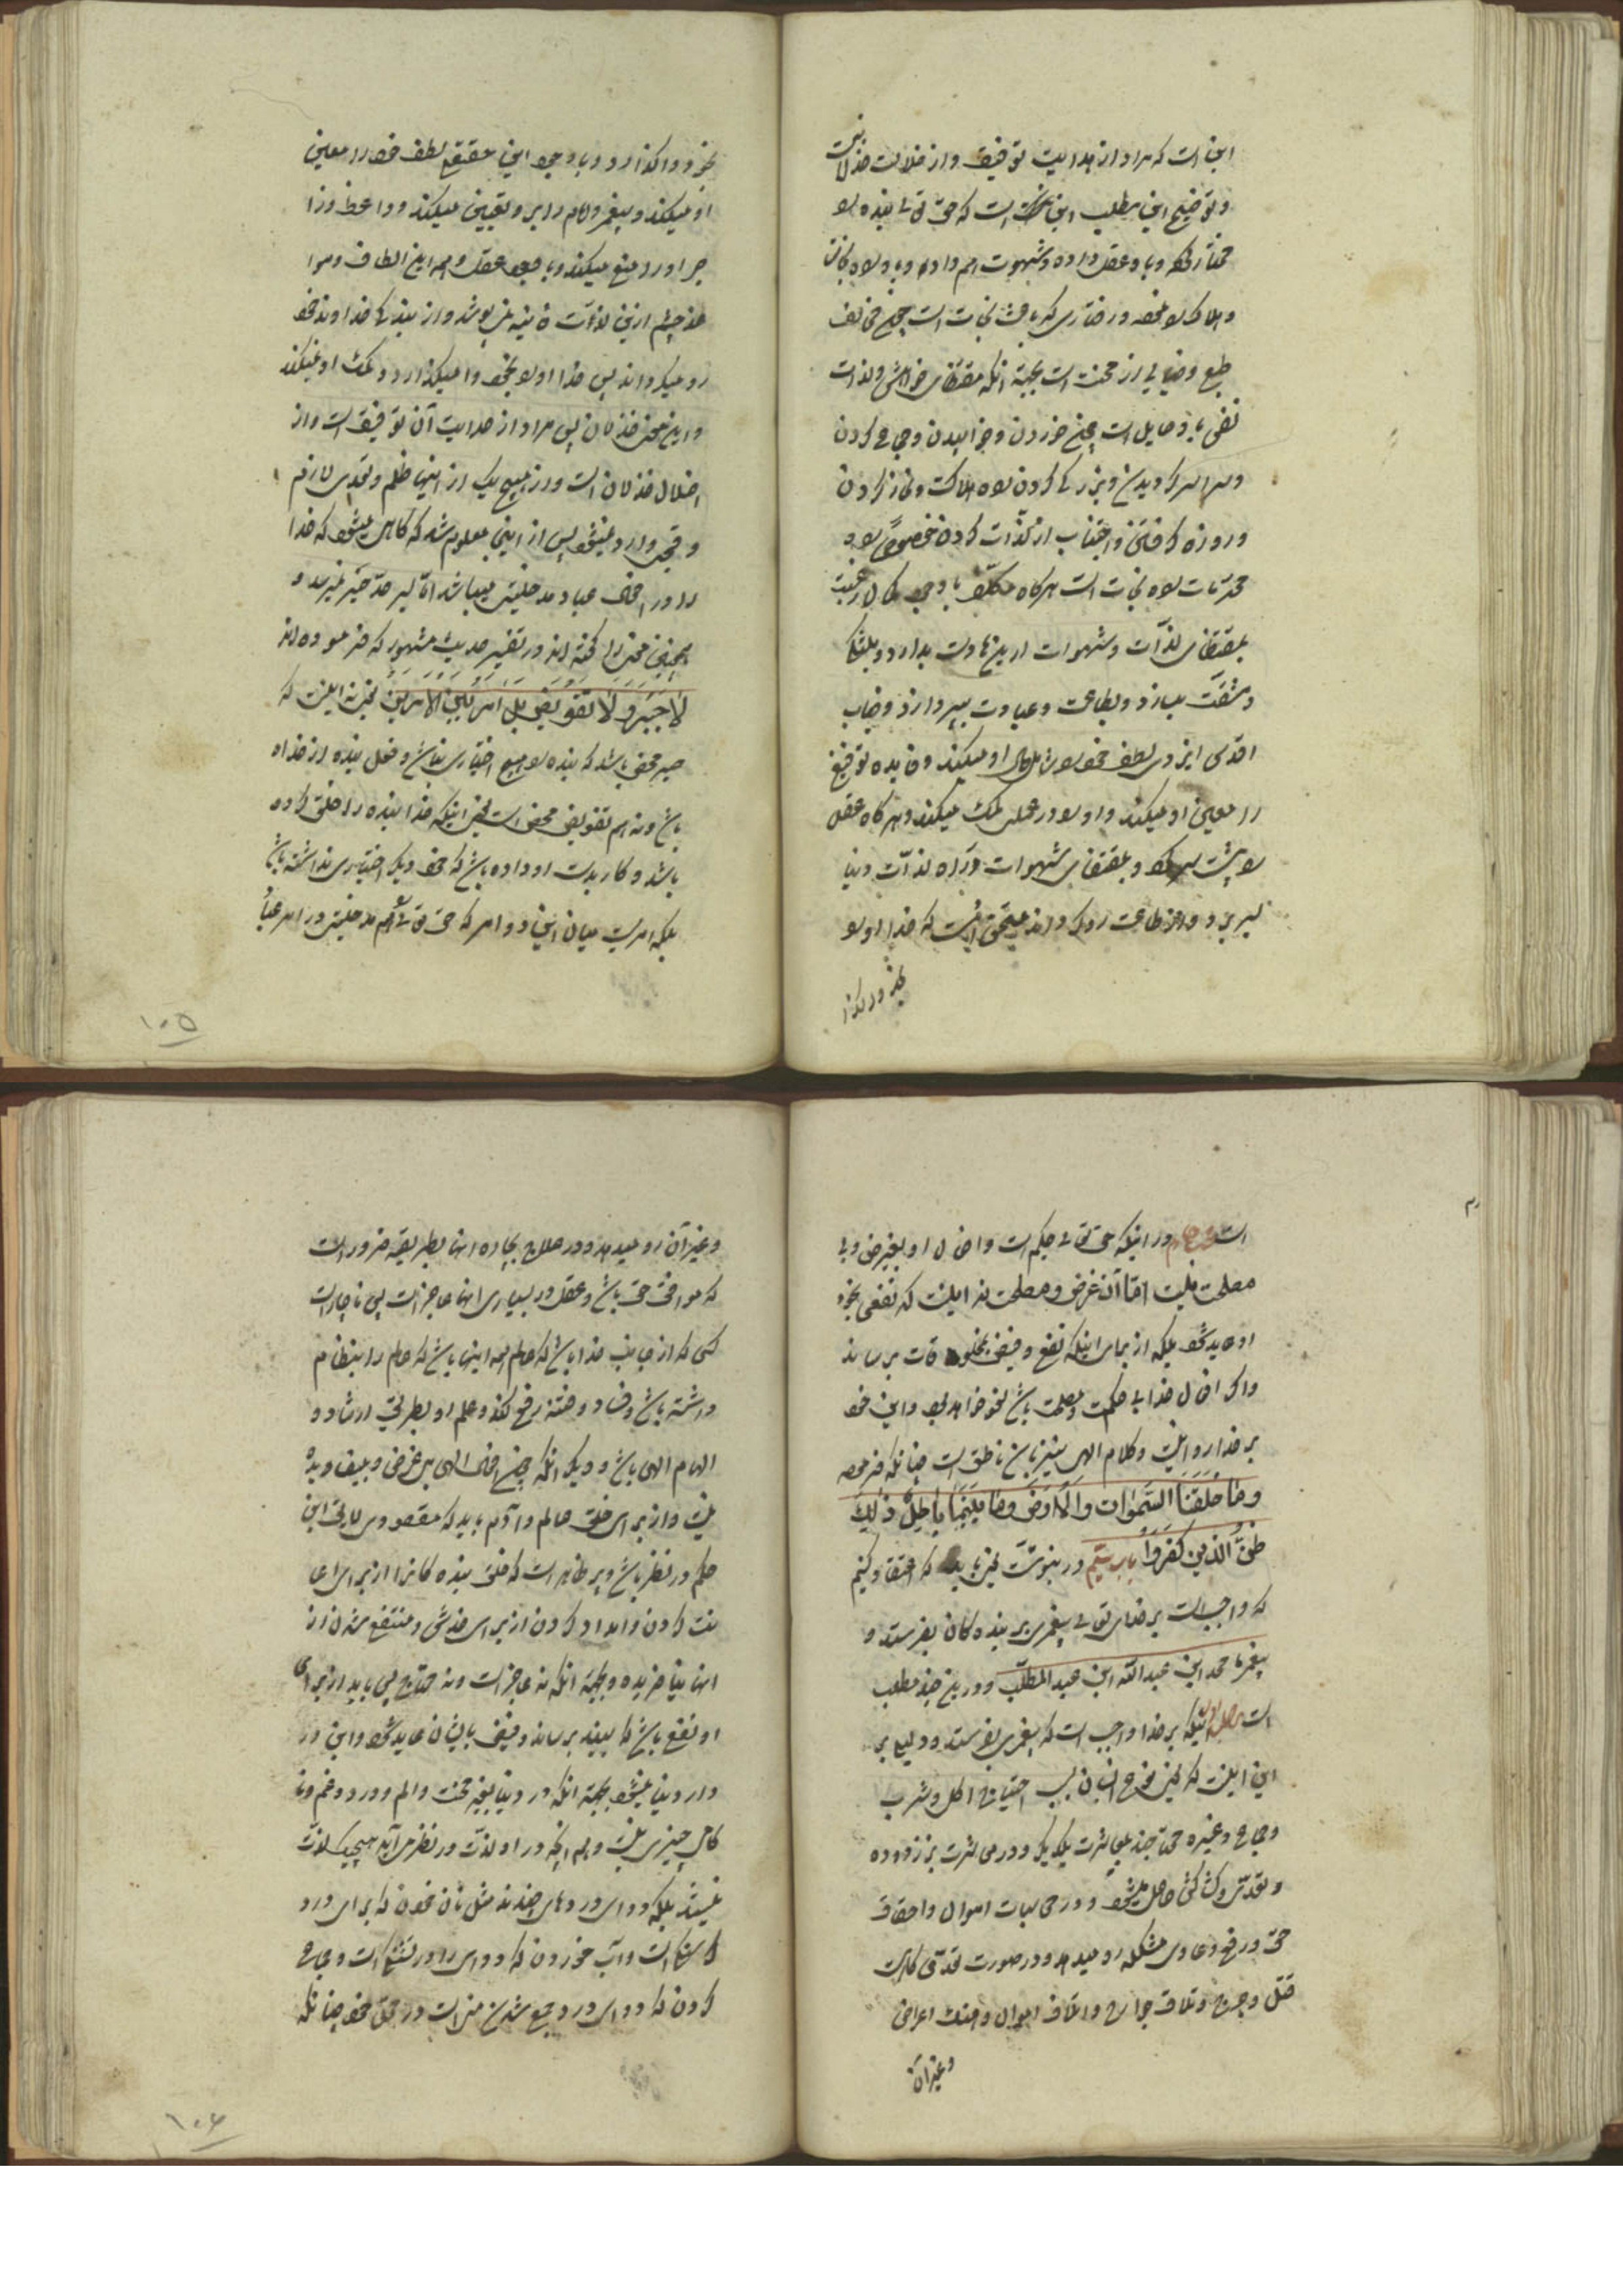 این است که مراد از هدایت توفیق و از ضلالت خذلانست
و توضیح این مطلب این است که حق تعالی بنده را
مختار کرده و باو عقل داده و شهوت هم داده و باو راه نجات
و هلاک را نموده و رفتاری که باعث نجات است جمیع مخالف
طبع و خالی از محنت است بجهة آنکه مقتضای خواهش و لذات
نفس باو مایل است جمیع خوردن و خوابیدن و جماع کردن
و سراسر کردیدن و بزرکی کردن راه هلاکت و نماز کردن
و روزه کرفتن و اجتناب از لذّات کردن خصوصاً از
محرّمات راه نجات است هرکاه مکلّف با وجود کمال رغبت
بمقتضای لذّات و شهوات ازینها دست بدارد و بمشاق
و مشقّت بسازد و بطاعت و عبادت بپردازد و جناب
اقدس ایزدی لطف خود را شامل حال او میکند و فایده توفیق
را معین او میکند و او را در عمل کمک میکند و هرکاه عقل
را پشت سر کند و بمقتضای شهوات و راه لذّات دنیا
بسر برد و از طاعت رو کرداند مستحق آنست که خدا او را
بخود واکذا
بخود واکذارد و با وجود این حقیقع لطف خود را معین
او میکند و پیغمبر و امام را بر او تعیین میکند و واعظ و زا
جر او را منع میکند و با وجود عقل و همه این الطاف و سوا
هد چشم ازین لذّات فانیه نمی پوشد و از بندکی خداوند خود
رو میکرداند پس خدا او را بخود وامیکذارد و کمک او نمیکند
و این معنی خذلان پس مراد از هدایت آن توفیق است و از
اضلال خذلان است و از هیچ یک از اینها ظلم و تعدی لازم
و قبحی وارد نمیشود پس از این معلوم شد که کاهی میشود که خدا
را در افعال عباد مدخلیتی میباشد امّا بسر حدّ جبر نمیرسد و
همچنین معنی را کفته اند در تفسیر حدیث مشهور که فرموده اند
لا جَبَرَ وَ لا تَفویضَ بَل اَمرٌ بَینَ الاَمرَینِ یعنی نه اینست که
جبر محض باشد که بنده را هیچ اختیاری نباشد و فعل بنده از خدا
باشد و نه هم تفویض محض است یعنی اینکه خدا بنده را خلق کرده
باشد و کار بدست او داده باشد که خود دیکر اختیاری نداشته باشد
بلکه امریست میان این دو امر که حق تعالی را هم مدخلیتی در امر عباد
است مبحث چهارم در اینکه حق تعالی حکیم است و افعال او بغیر غرض و بی
مصلحت نیست امّا آن غرض و مصلحت نه اینست که نفعی بخود
او عاید شود بلکه از برای اینکه نفع و فیض بمخلوقات برساند
و اکر افعال خدا بی حکمت و مصلحت باشد لغو خواهد بود و این خود
بر خدا روا نیست و کلام الهی نیز باین ناطق است چنانکه فرموده
وما خَلَقنَا السَّمٰواتِ والاَرضَ وما بَینَهُما باطِلً ذٰلِکَ
ظَنُّ الَّذینَ کَفَرُوا باب سیّم در نبوّت یعنی باید که اعتقاد کنیم
که واجب است بر خدای تعالی پیغمبری بر بنده کان بفرستد و
پیغمبر ما محمد ابن عبداللّه ابن عبدالمطلّب و در این چند مطلب
است مطلب اول اینکه بر خدا واجب است که پیغمبری بفرستد و دلیل بر
این اینست که نوع انسان بسبب احتیاج اکل و شرب
و جماع و غیره محتاجند بمعاشرت یکدیکر و در معاشرت نزاع
و تعدّی و کشاکش حاصل میشود و در محاسبات اموال و احقاق
حق و رفع دعاوی مشکله رو میدهد و در صورت تعدّی کار
قتل و جرح و تلاف جوارح و اتلاف اموال و هتک اعراض
و غیر آن
و غیر آن رو میدهد و در علاج چاره انها بطریقه ضرور است
که موافق حق باشد و عقل در بسیاری انها عاجز است پس ناچار است
کسی که از جانب خدا باشد که عالم بهمه اینها باشد که عالم را بنظام
داشته باشد و فساد و فتنه رفع کند و علم او بطریق ارشاد و
الهام الهی باشد و دیکر آنکه جمیع افعال الهی بی غرض و بیفایده
نیست و از برای خلق عالم و آدم باید که مقصودی لایق این
حکم در نظر باشد و بر ظاهر است که خلق بنده کانرا از برای اعا
نت کردن و امداد کردن از برای خدش و منتفع شدن از
انها نیافریده بجهة آنکه نه عاجز است و نه محتاج پس باید از برای
او نفع باشد که ببنده برساند و فیض بایشان عاید شود و این در
دار دنیا نمیشود بجهة آنکه در دنیا بغیر محنت و الم و درد و غم و نا
کامی چیزی نیست و هم انچه در او لذّت در نظر می آید هیچیک لذّت
نیستند بلکه دوای دردهای چندند مثل نان خوردن که برای درد
کرسنکی است و آب خوردن که دوای درد تشنکی است و جماع
کردن که دوای درد جمع شدن منی است در محلّ خود چنانکه
۱۰۵
۱۰۶